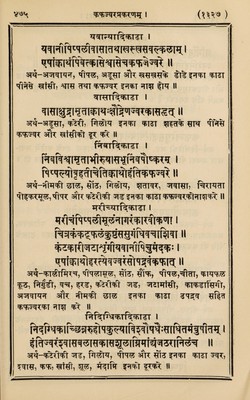 ४७५ कफज्वरप्रकरणम् । (१३२७)
यवान्यादिकाढा ।
यवानीपिप्पलीवासातथाखस्खसवल्कलाम् ।
एषांक्वाथंपिबेत्कासेश्वासेचकफजेज्वरे ॥
अर्थ–अजवायन, पीपल, अडूसा और खसखसके डोडे इनका काढा
पीनेसे खाँसी, श्वास तथा कफज्वर इनका नाश होय ॥
वासादिकाढा ।
वासाक्षुद्रामृताक्वाथःक्षौद्रेणज्वरकासहृत् ॥
अर्थ–अडूसा, कटेरी, गिलोय इनका काढा शहतके साथ पीनेसे
कफज्वर और खाँसीको दूर करे ॥
निंबादिकाढा ।
निंबविश्वामृताभीरुयासभूनिंबपौष्करम् ।
पिप्पल्योबृहतीचेतिक्वाथोहंतिकफज्वरम् ॥
अर्थ–नीमकी छाल, सोंठ, गिलोय, शतावर, जवासा, चिरायता
पोहकरमूल, पीपर और कटेरीकी जड इनका काढा कफज्वरकोनाशकरे ॥
मरीच्यादिकाढा ।
मरीचंपिप्पलीमूलंनागरंकारवीकणा ।
चित्रकंकट्फलंकुष्ठंससुगंधिवचाशिवा ॥
कंटकारीजटाशृंगीयवानीपिचुमंदकः ।
एषांक्वाथोहरत्येवज्वरंसोपद्रवंकफात् ॥
अर्थ–कालीमिरच, पीपलामूल, सोंठ, सौंफ, पीपल, चीता, कायफल
कूठ, निर्गुंडी, वच, हरड, कटेरीकी जड, जटामांसी, काकडासिंगी,
अजवायन और नीमकी छाल इनका काढा उपद्रव सहित
कफज्वरका नाश करे ॥
निदिग्धिकादिकाढा ।
निदग्धिकाच्छिन्नरुहोपकुल्याविश्वौषधैःसाधितमंबुपीतम् ।
हंतिज्वरंश्वासबलासकासशूलाग्निमांद्यंजठरानिलंच ॥
अर्थ–कटेरीकी जड, गिलोय, पीपल और सोंठ इनका काढा ज्वर,
श्वास, कफ, खाँसी, शूल, मंदाग्नि इनको दूरकरे ॥